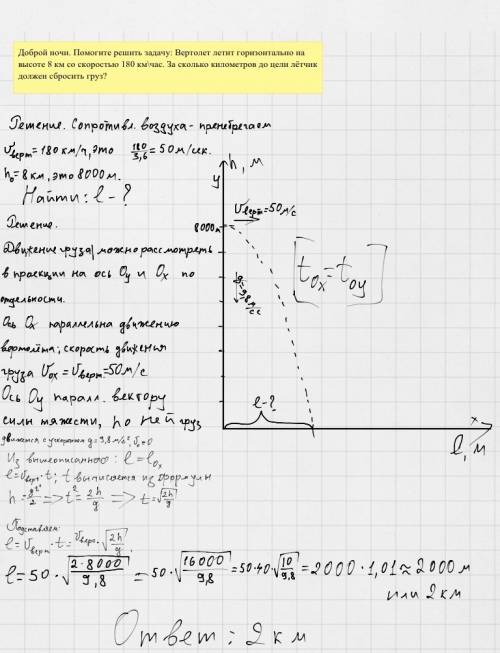 Доброй ночи. Помогите решить задачу: Вертолет летит горизонтально на
высоте 8 км со скоростью 180 км\час. За сколько километров до цели лётчик
должен сбросить груз?
Решение. Сопротивл. воздуха - пренебрегаем
υверт = 180 км/ч, это 180/3,6 = 50 м/сек.
h₀ = 8 км, это 8000 м.
Найти: l - ?
Решение.
Движение груза можно рассмотреть
в проекции на ось Oy и Ox по
отдельности.
Ось Ox параллельна движению
вертолёта; скорость движения
груза υox = υверт = 50 м/с
Ось Oy паралл. вектору
силы тяжести, по ней груз
движется с ускорением g = 9,8 м/с², υ₀ = 0
Из вышеописанного: l = lox
l = υверт · t; t вычисляется из формулы
h = gt²/2 => t² = 2h/g => t = √(2h/g)
Подставляем:
l = υверт · t = υверт · √(2h/g).
l = 50 · √(2·8000/9,8) = 50 · √(16000/9,8) = 50·40·√(10/9,8) = 2000 · 1,01 ≈ 2000 м
или 2 км
Ответ: 2 км
h, м
y
8000м
υверт = 50 м/с
g = 9,8 м/с²
[tox = toy]
l - ?
x
l, м